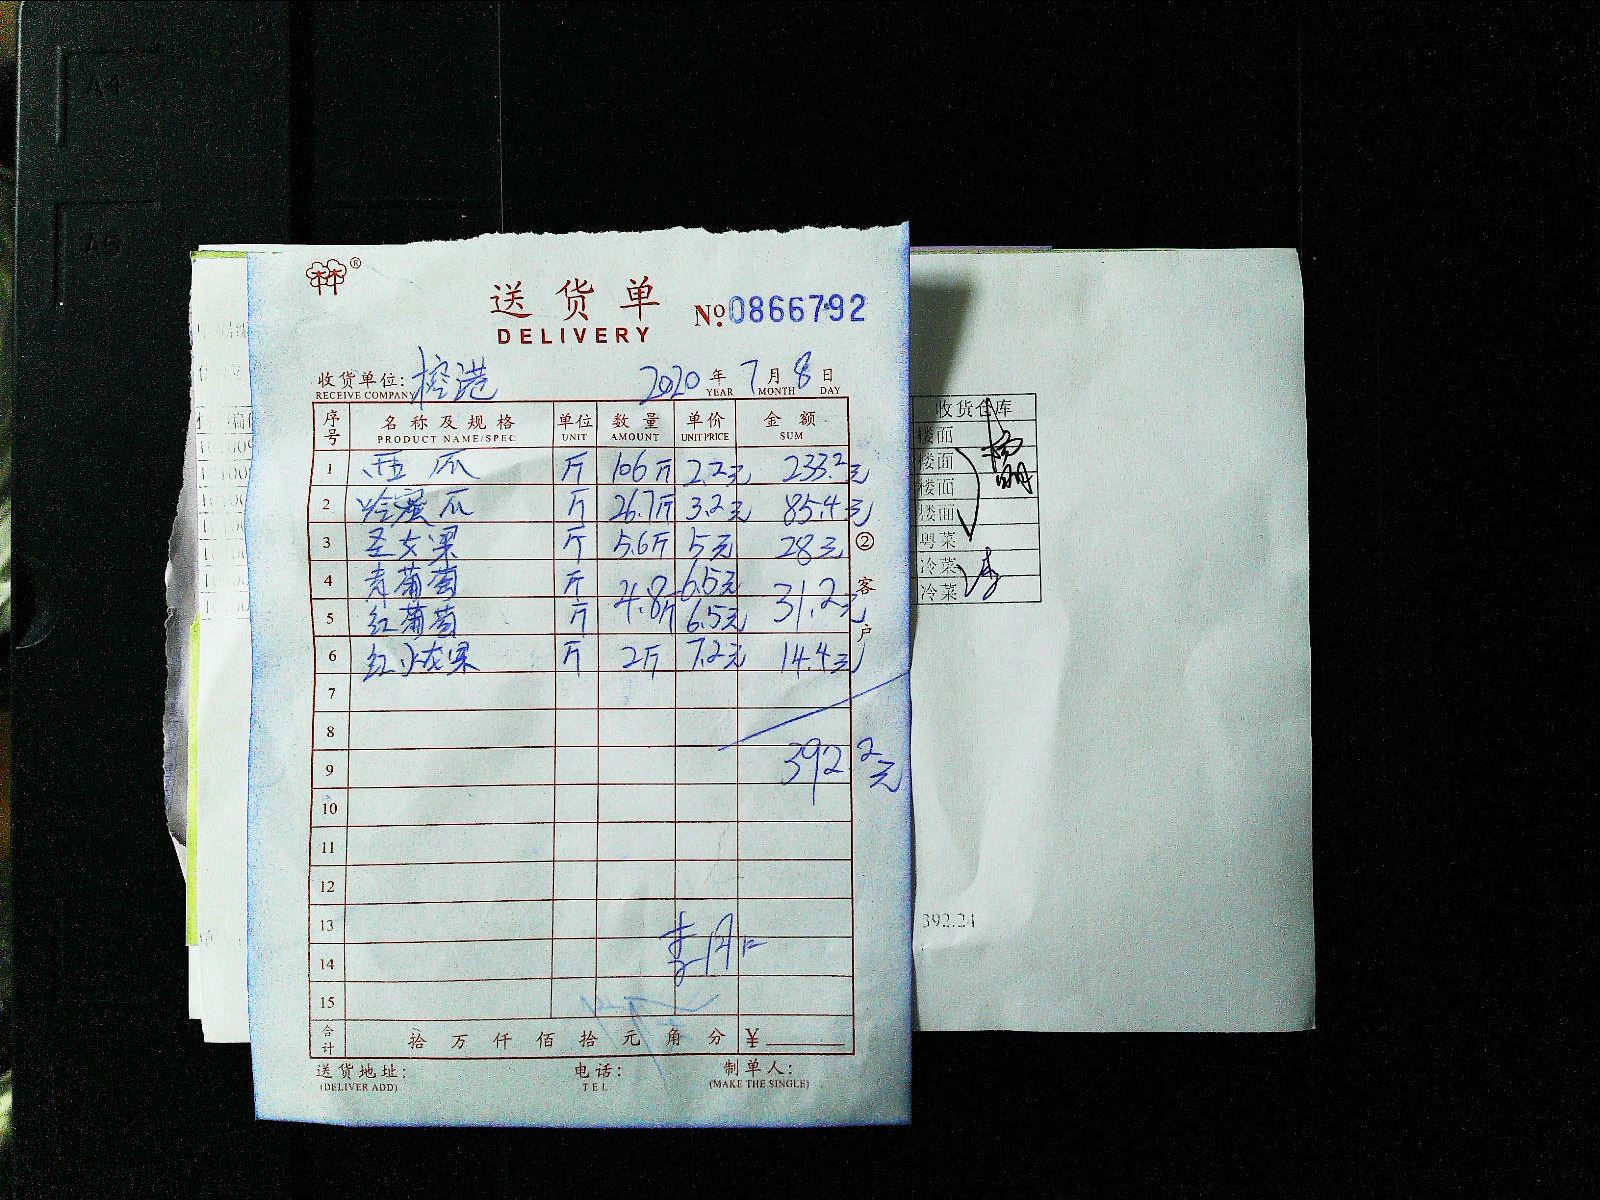 A4
A5
送货单
DELIVERY
№ 0866792
收货单位: 控港 2020年7月8日
RECEIVE COMPANY YEAR MONTH DAY
序号 名称及规格 单位 数量 单价 金额
PRODUCT NAME/SPEC UNIT AMOUNT UNIT PRICE SUM
1 西瓜 斤 106斤 2.2元 233.2元
2 哈蜜瓜 斤 26.7斤 3.2元 85.4元
3 圣女果 斤 5.6斤 5元 28元
4 青葡萄 斤 4.8斤 6.5元 31.2元
5 红葡萄 斤 6.5元
6 红火龙果 斤 2斤 7.2元 14.4元
7
8
9 392.2元
10
11
12
13
14
15
合计 拾万仟佰拾元角分 ¥
②客户
送货地址: 电话: 制单人:
(DELIVER ADD) TEL (MAKE THE SINGLE)
收货仓库
楼面
楼面
楼面
楼面
粤菜
冷菜
冷菜
392.24